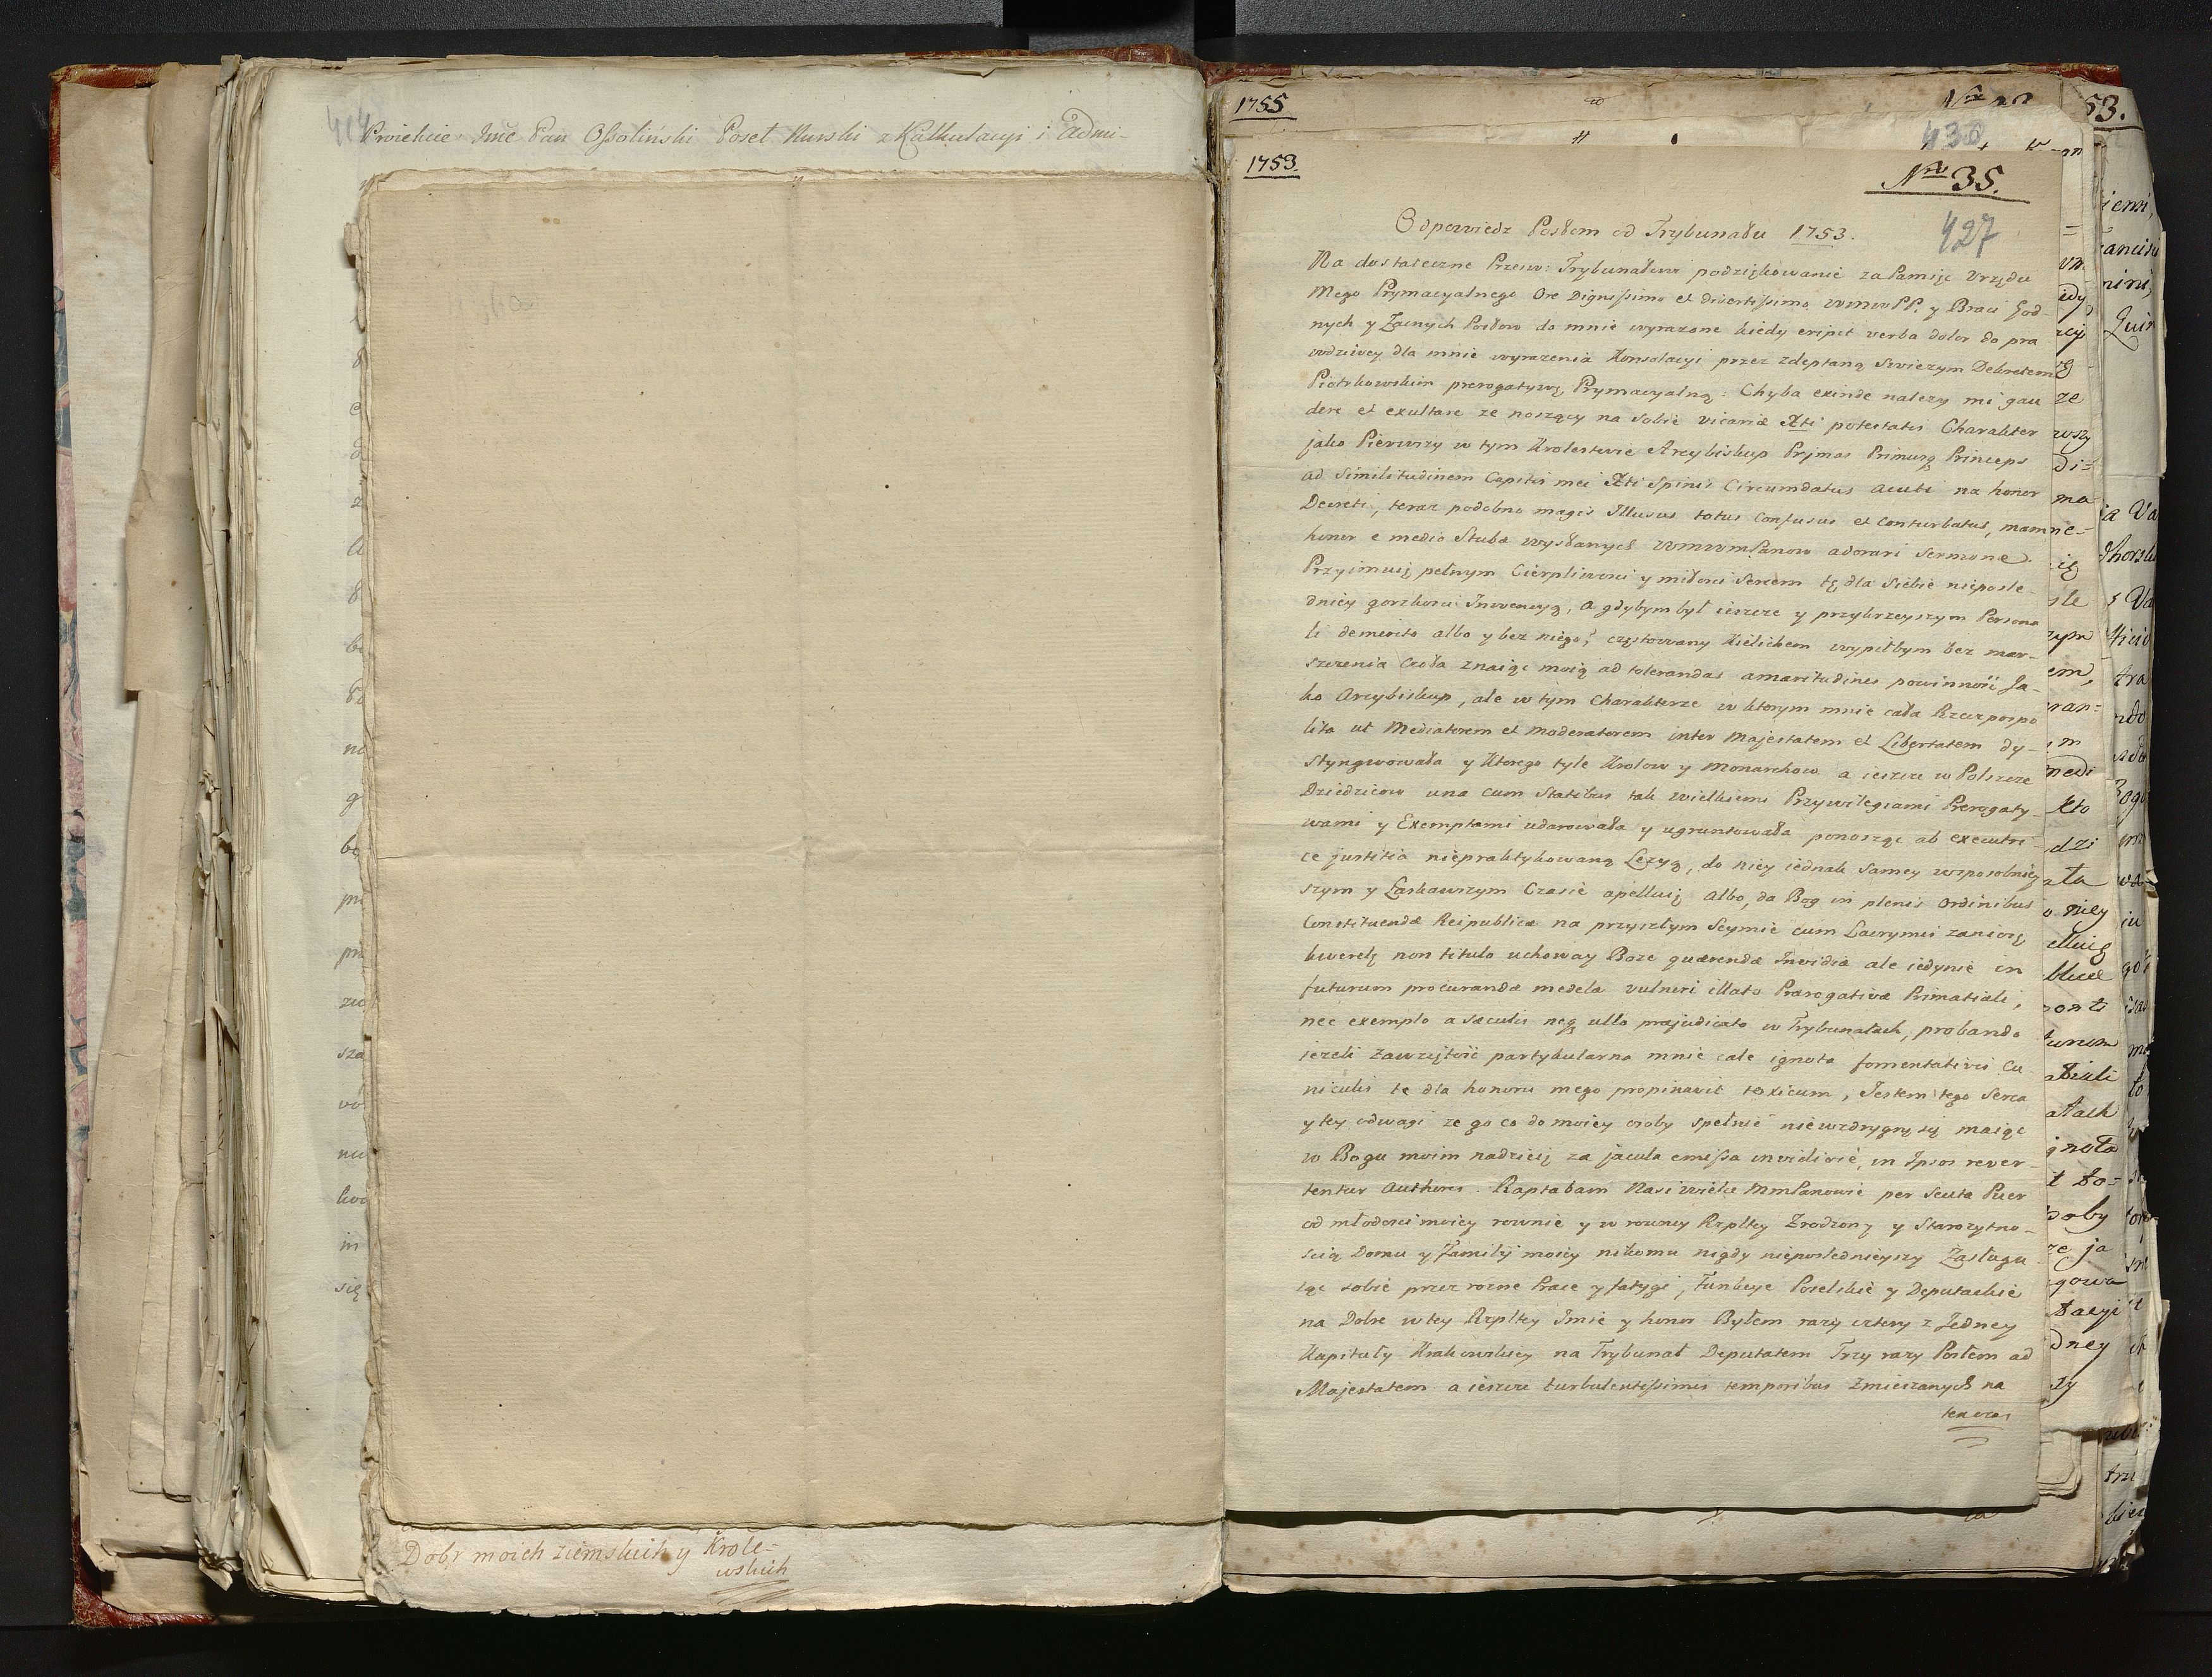 Proiekcie Jmć Pan Ossoliński Poseł Nurski z Kalkulacyi i Admi-
Dobr moich ziemskich y Krole-
wskich
1755
430
53.
1753.
Nro 35.
427
Odpowiedz Posłom od Trybunału 1753.
Na dostateczne Przesw: Trybunałowi podziękowanie za Pamięc Urzędu
mego Prymacyalnego Ore Dignissimo et disertissimo WmwPP. y Braci God-
nych y Zacnych Posłow do mnie wyrazone kiedy eripit verba dolor do pra
wdziwey dla mnie wyrazenia Konsolacyi przez zdeptaną swiezym Dekretem
Piotrkowskim prerogatywę Prymacyalną: Chyba exinde nalezy mi gau
dere et exultare ze noszący na sobie vicariæ Xti potestatis Charakter
jako Pierwszy w tym Krolestwie Arcybiskup Prymas Primusq Princeps
ad similitudinem Capitis mei Xti Spinis Circumdatus acuti na honor
Decreti, teraz podobno magis Illusus totus Confusus et Conturbatus, mam
honor e medio Stubæ wysłanych WmwmPanow adorari Sermone.
Przyimuię pełnym Cierpliwosci y miłosci Sercem tę dla siebie nieposle-
dniey gorzkosci Inwencyą, a gdybym był ieszcze y przykrzeyszym Persona
li demerito albo y bez niego, częstowany Kielichem wypiłbym bez mar-
szczenia Czoła znaiąc moią ad tolerandas amaritudines powinność Ja-
ko Arcybiskup, ale w tym Charakterze w ktorym mnie cała Rzeczpospo
lita ut Mediatorem et moderatorem inter Majestatem et Libertatem dy-
styngwowała y Ktorego tyle Krolow y Monarchow a ieszcze w Polszcze
Dziedzicow una cum Statibus tak wielkiemi Przywilegiami Prerogaty-
wami y Exemptami udarowała y ugruntowała ponosząc ab executri-
ce justitia niepraktykowaną Lezyą, do niey iednak samey w sposobniey
szym y Łaskawszym Czasie apelluię albo, da Bog in plenis Ordinibus
Constituendæ Reipublicæ na przyszłym Seymie cum Lacrymis zaniosę
kwerelę non titulo uchoway Boze quærendæ Invidiæ ale iedynie in
futurum procurandæ medelæ vulneri illato Prærogativæ Primatiali,
nec exemplo a sæculis neq ullo præjudicato w Trybunałach, probando
iezeli Zawziętość partykularna mnie cale ignota fomentativis Cu-
niculis te dla honoru mego propinavit toxicum, Jestem tego Serca
y tey odwagi ze go co do moiey osoby spełnić niewzdrygnę się maiąc
w Bogu moim nadzieię za jacula emissa invidiose, in Ipsos rever-
tentur Authores. Raptabam Nasi wielce MmPanowie per Scuta Puer
od młodosci moiey rownie y w rowney Rzpltey Zrodzony y Starozytno-
scią Domu y Familij moiey nikomu nigdy nieposledneyszy Zasługu
iąc sobie przez rozne Prace y fatygi, Funkcye Poselskie y Deputackie
na Dobre w tey Rzpltey Imie y honor Byłem razy cztery z Jedney
Kapituły Krakowskiey na Trybunał Deputatem Trzy razy Posłem ad
Majestatem a ieszcze turbulentissimis temporibus Zmieszanych na
ten czas